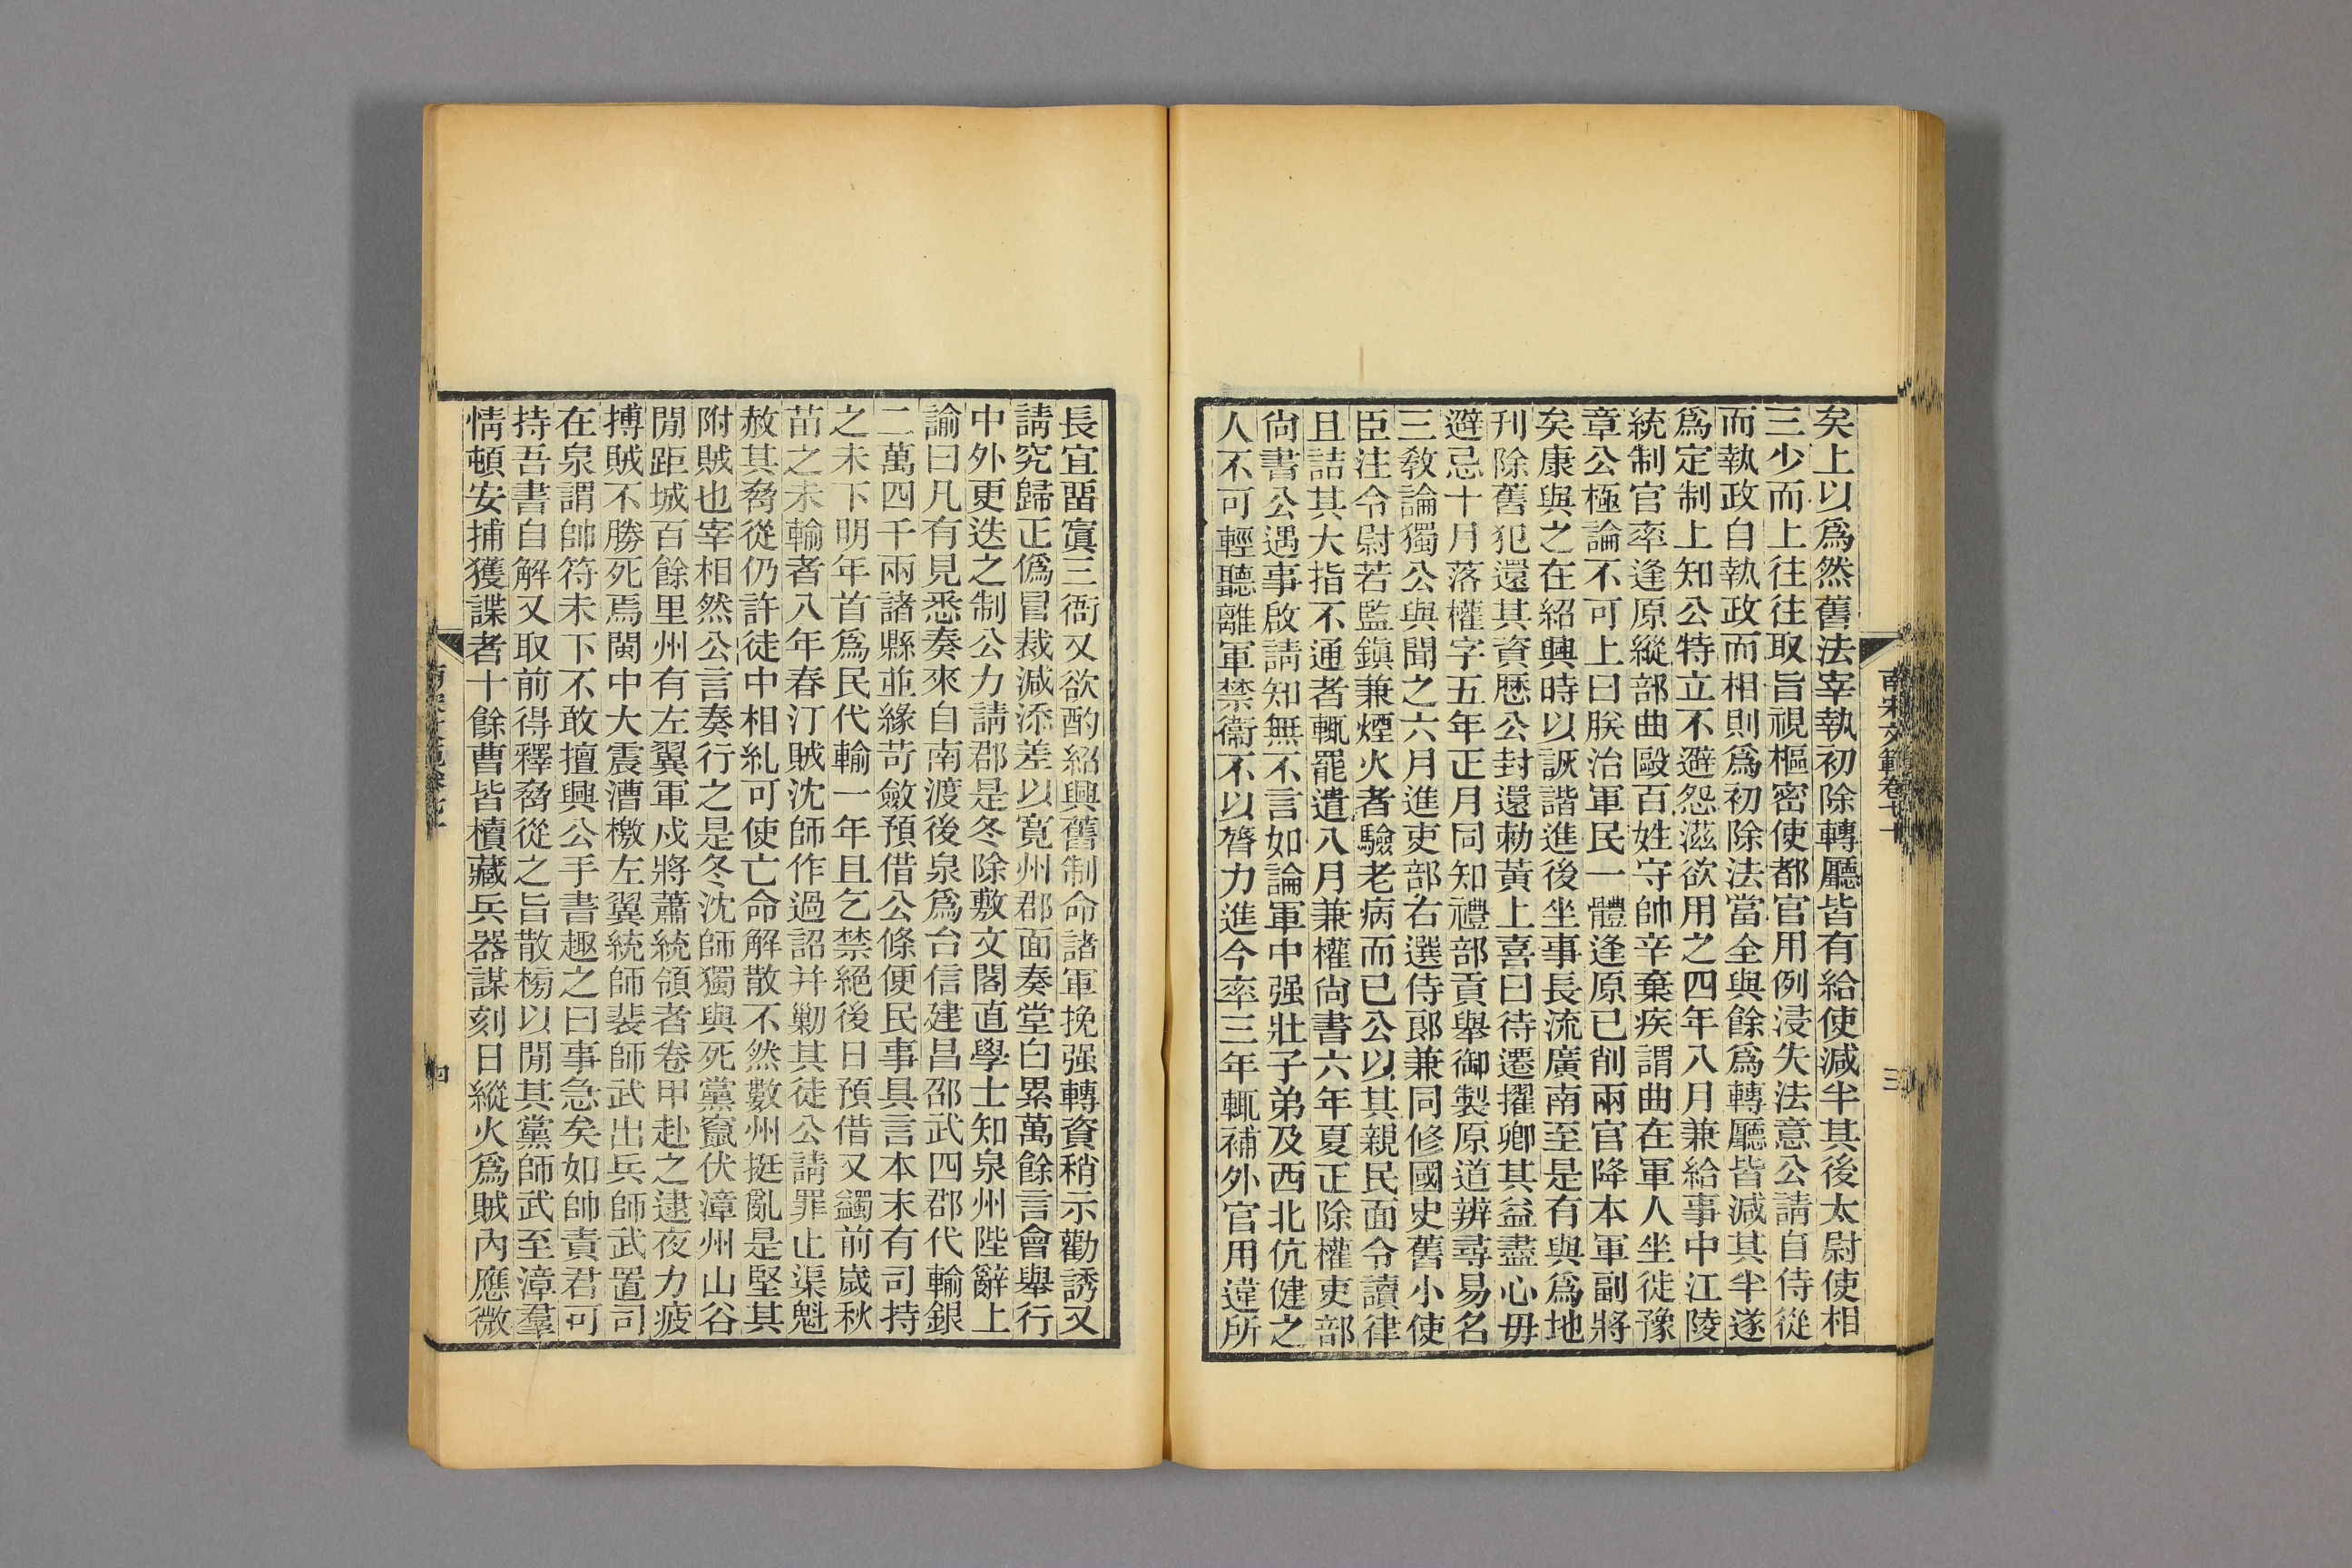 矣上以爲然舊法宰執初除轉廳皆有給使減半其後太尉使相
三少而上往往取旨視樞密使都官用例浸失法意公請自侍從
而執政自執政而相則爲初除法當全與餘爲轉廳皆減其半遂
爲定制上知公特立不避怨滋欲用之四年八月兼給事中江陵
統制官率逢原縱部曲毆百姓守帥辛棄疾謂曲在軍人坐徙豫
章公極論不可上曰朕治軍民一體逢原已削兩官降本軍副將
矣康與之在紹興時以詼諧進後坐事長流廣南至是有與爲地
刊除舊犯還其資歷公封還勅黃上喜曰待遷擢卿其益盡心毋
避忌十月落權字五年正月同知禮部貢舉御製原道辨尋易名
三敎論獨公與聞之六月進吏部右選侍郎兼同修國史舊小使
臣注令尉若監鎭兼煙火者驗老病而已公以其親民面令讀律
且詰其大指不通者輒罷遣八月兼權尙書六年夏正除權吏部
尙書公遇事啟請知無不言如論軍中强壯子弟及西北伉健之
人不可輕聽離軍禁衞不以膂力進今率三年輒補外官用違所
南宋文範卷七十
三
長宜畱寘三衙又欲酌紹興舊制命諸軍挽强轉資稍示勸誘又
請究歸正僞冒裁減添差以寬州郡面奏堂白累萬餘言會舉行
中外更迭之制公力請郡是冬除敷文閣直學士知泉州陛辭上
諭曰凡有見悉奏來自南渡後泉爲台信建昌邵武四郡代輸銀
二萬四千兩諸縣並緣苛斂預借公條便民事具言本末有司持
之未下明年首爲民代輸一年且乞禁絕後日預借又蠲前歲秋
苗之未輸者八年春汀賊沈師作過詔并勦其徒公請罪止渠魁
赦其脅從仍許徒中相糺可使亡命解散不然數州挺亂是堅其
附賊也宰相然公言奏行之是冬沈師獨與死黨竄伏漳州山谷
閒距城百餘里州有左翼軍戍將蕭統領者卷甲赴之逮夜力疲
搏賊不勝死焉閩中大震漕檄左翼統師裴師武出兵師武置司
在泉謂帥符未下不敢擅興公手書趣之曰事急矣如帥責君可
持吾書自解又取前得釋脅從之旨散榜以閒其黨師武至漳羣
情頓安捕獲諜者十餘曹皆櫝藏兵器謀刻日縱火爲賊內應微
四